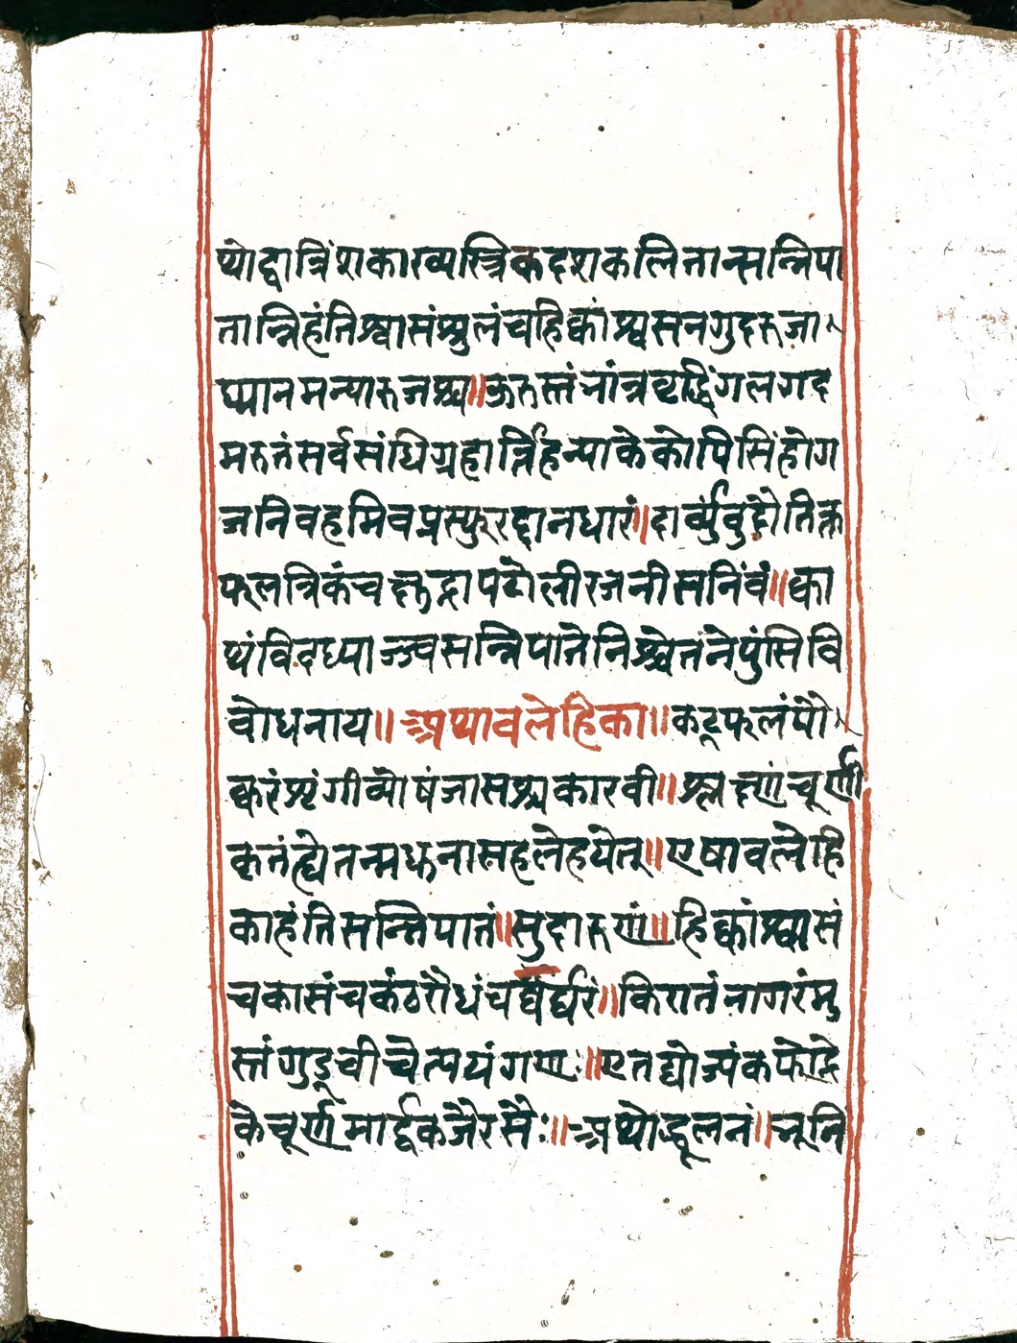 थोद्वात्रिंशकाख्यस्त्रिकदशकलितान्सन्निपा
तान्निहंतिश्वासंश्रुलंचहिक्कांश्वसनगुदरुजा
ध्यानमन्यारुजश्च॥ऊरुस्तंनांत्रवृद्धिंगलगद
मरुतंसर्वसंधिग्रहार्त्तिंहन्याकेकोपिसिंहोग
जनिवहमिवप्रस्फुरद्दानधारं॥दार्व्यंवुदोतिक्त
फलत्रिकंचक्षुद्रापटोलीरजनीसनिंवं॥क्वा
थंविदध्याज्ज्वसन्निपातेनिश्चेतनेपुंसिवि
वोधनाय॥अथावलेहिका॥कट्फलंपौ
ष्करंशृंगीव्योषंजासश्चकारवी॥श्लक्ष्णंचूर्णी
कृतंह्येतन्मधुनासहलेहयेत्॥एषावलेहि
काहंतिसन्निपातं॥सुदारुणं॥हिक्कांश्वासं
चकासंचकंठरोधंचघर्घरं॥किरातंनागरंमु
स्तंगुडूचीचेत्पयंगणः॥एतद्योज्यंकफोद्रे
केचूर्णमार्द्रकजैरसैः॥अथोद्धूलनं॥नूनि